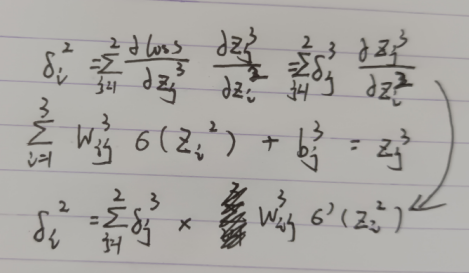 δᵢ² = ∑ⱼ₌₁² ∂loss/∂zⱼ³ ∂zⱼ³/∂zᵢ² = ∑ⱼ₌₁² δⱼ³ ∂zⱼ³/∂zᵢ²
∑ᵢ₌₁³ Wᵢⱼ³ σ(zᵢ²) + bⱼ³ = zⱼ³
δᵢ² = ∑ⱼ₌₁² δⱼ³ × Wᵢⱼ³ σ'(zᵢ²)